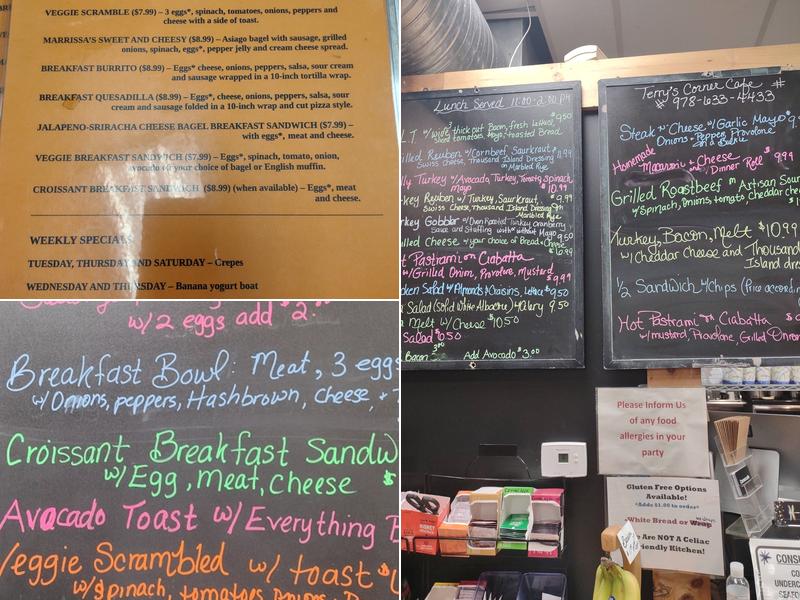 VEGGIE SCRAMBLE ($7.99) – 3 eggs*, spinach, tomatoes, onions, peppers and
cheese with a side of toast.
MARRISSA'S SWEET AND CHEESY ($8.99) – Asiago bagel with sausage, grilled
onions, spinach, eggs*, pepper jelly and cream cheese spread.
BREAKFAST BURRITO ($8.99) – Eggs* cheese, onions, peppers, salsa, sour cream
and sausage wrapped in a 10-inch tortilla wrap.
BREAKFAST QUESADILLA ($8.99) – Eggs*, cheese, onions, peppers, salsa, sour
cream and sausage folded in a 10-inch wrap and cut pizza style.
JALAPENO-SRIRACHA CHEESE BAGEL BREAKFAST SANDWICH ($7.99) –
with eggs*, meat and cheese.
VEGGIE BREAKFAST SANDWICH ($7.99) – Eggs*, spinach, tomato, onion,
avocado on your choice of bagel or English muffin.
CROISSANT BREAKFAST SANDWICH ($8.99) (when available) – Eggs*, meat
and cheese.
WEEKLY SPECIALS
TUESDAY, THURSDAY AND SATURDAY – Crepes
WEDNESDAY AND THURSDAY – Banana yogurt boat
w/ 2 eggs add $2.
Breakfast Bowl: Meat, 3 eggs
w/ Onions, peppers, Hashbrown, Cheese, +
Croissant Breakfast Sandw
w/ Egg, meat, cheese $
Avocado Toast w/ Everything B
Veggie Scrambled w/ toast $
w/ Spinach, tomatoes, Onions, P
Lunch Served 11:00-2:30 PM
L.T. w/ thick cut Bacon, fresh lettuce, $9.50
Sliced tomatoes, Mayo, toasted Bread
illed Reuben w/ Cornbeef Saurkraut,
Swiss Cheese, Thousand Island Dressing
on Marbled Rye
lly Turkey w/ Avocado, Turkey, Tomato, Spinach,
Mayo $10.99
rkey Reuben w/ Turkey, Saurkraut, $9.99
Swiss Cheese, Thousand Island Dressing
Marbled Rye
rkey Gobbler w/ Oven Roasted Turkey, Cranberry
Sauce and Stuffing with or without Mayo 9.50
lled Cheese w/ your choice of Bread + Cheese
t Pastrami on Ciabatta $10.99
w/ Grilled Onion, Provolone, Mustard $9.99
cken Salad w/ Almonds + Craisins, Lettuce $9.50
a Salad (Solid White Albacore) w/ Celery 9.50
a Melt w/ Cheese $10.50
Salad $10.50
Bacon 3.00
Add Avocado $3.00
Terry's Corner Cafe
# 978-633-4433 #
Steak n' Cheese w/ Garlic Mayo $9.
Onions + Peppers, Provolone
on a Bulkie
Homemade
Macaroni + Cheese
w/ Dinner Roll $9.99
Grilled Roastbeef on Artisan Sour
w/ Spinach, Onions, tomato cheddar che
Turkey, Bacon, Melt $10.99
w/ Cheddar Cheese and Thousand
Island dres
1/2 Sandwich w/ Chips (Price accordin
Hot Pastrami on Ciabatta $
w/ mustard, Provolone, Grilled Onion
Please Inform Us
of any food
allergies in your
party
Gluten Free Options
Available!
*Adds $1.00 to order*
White Bread or Wrap
e Are NOT A Celiac
iendly Kitchen!
HONEY